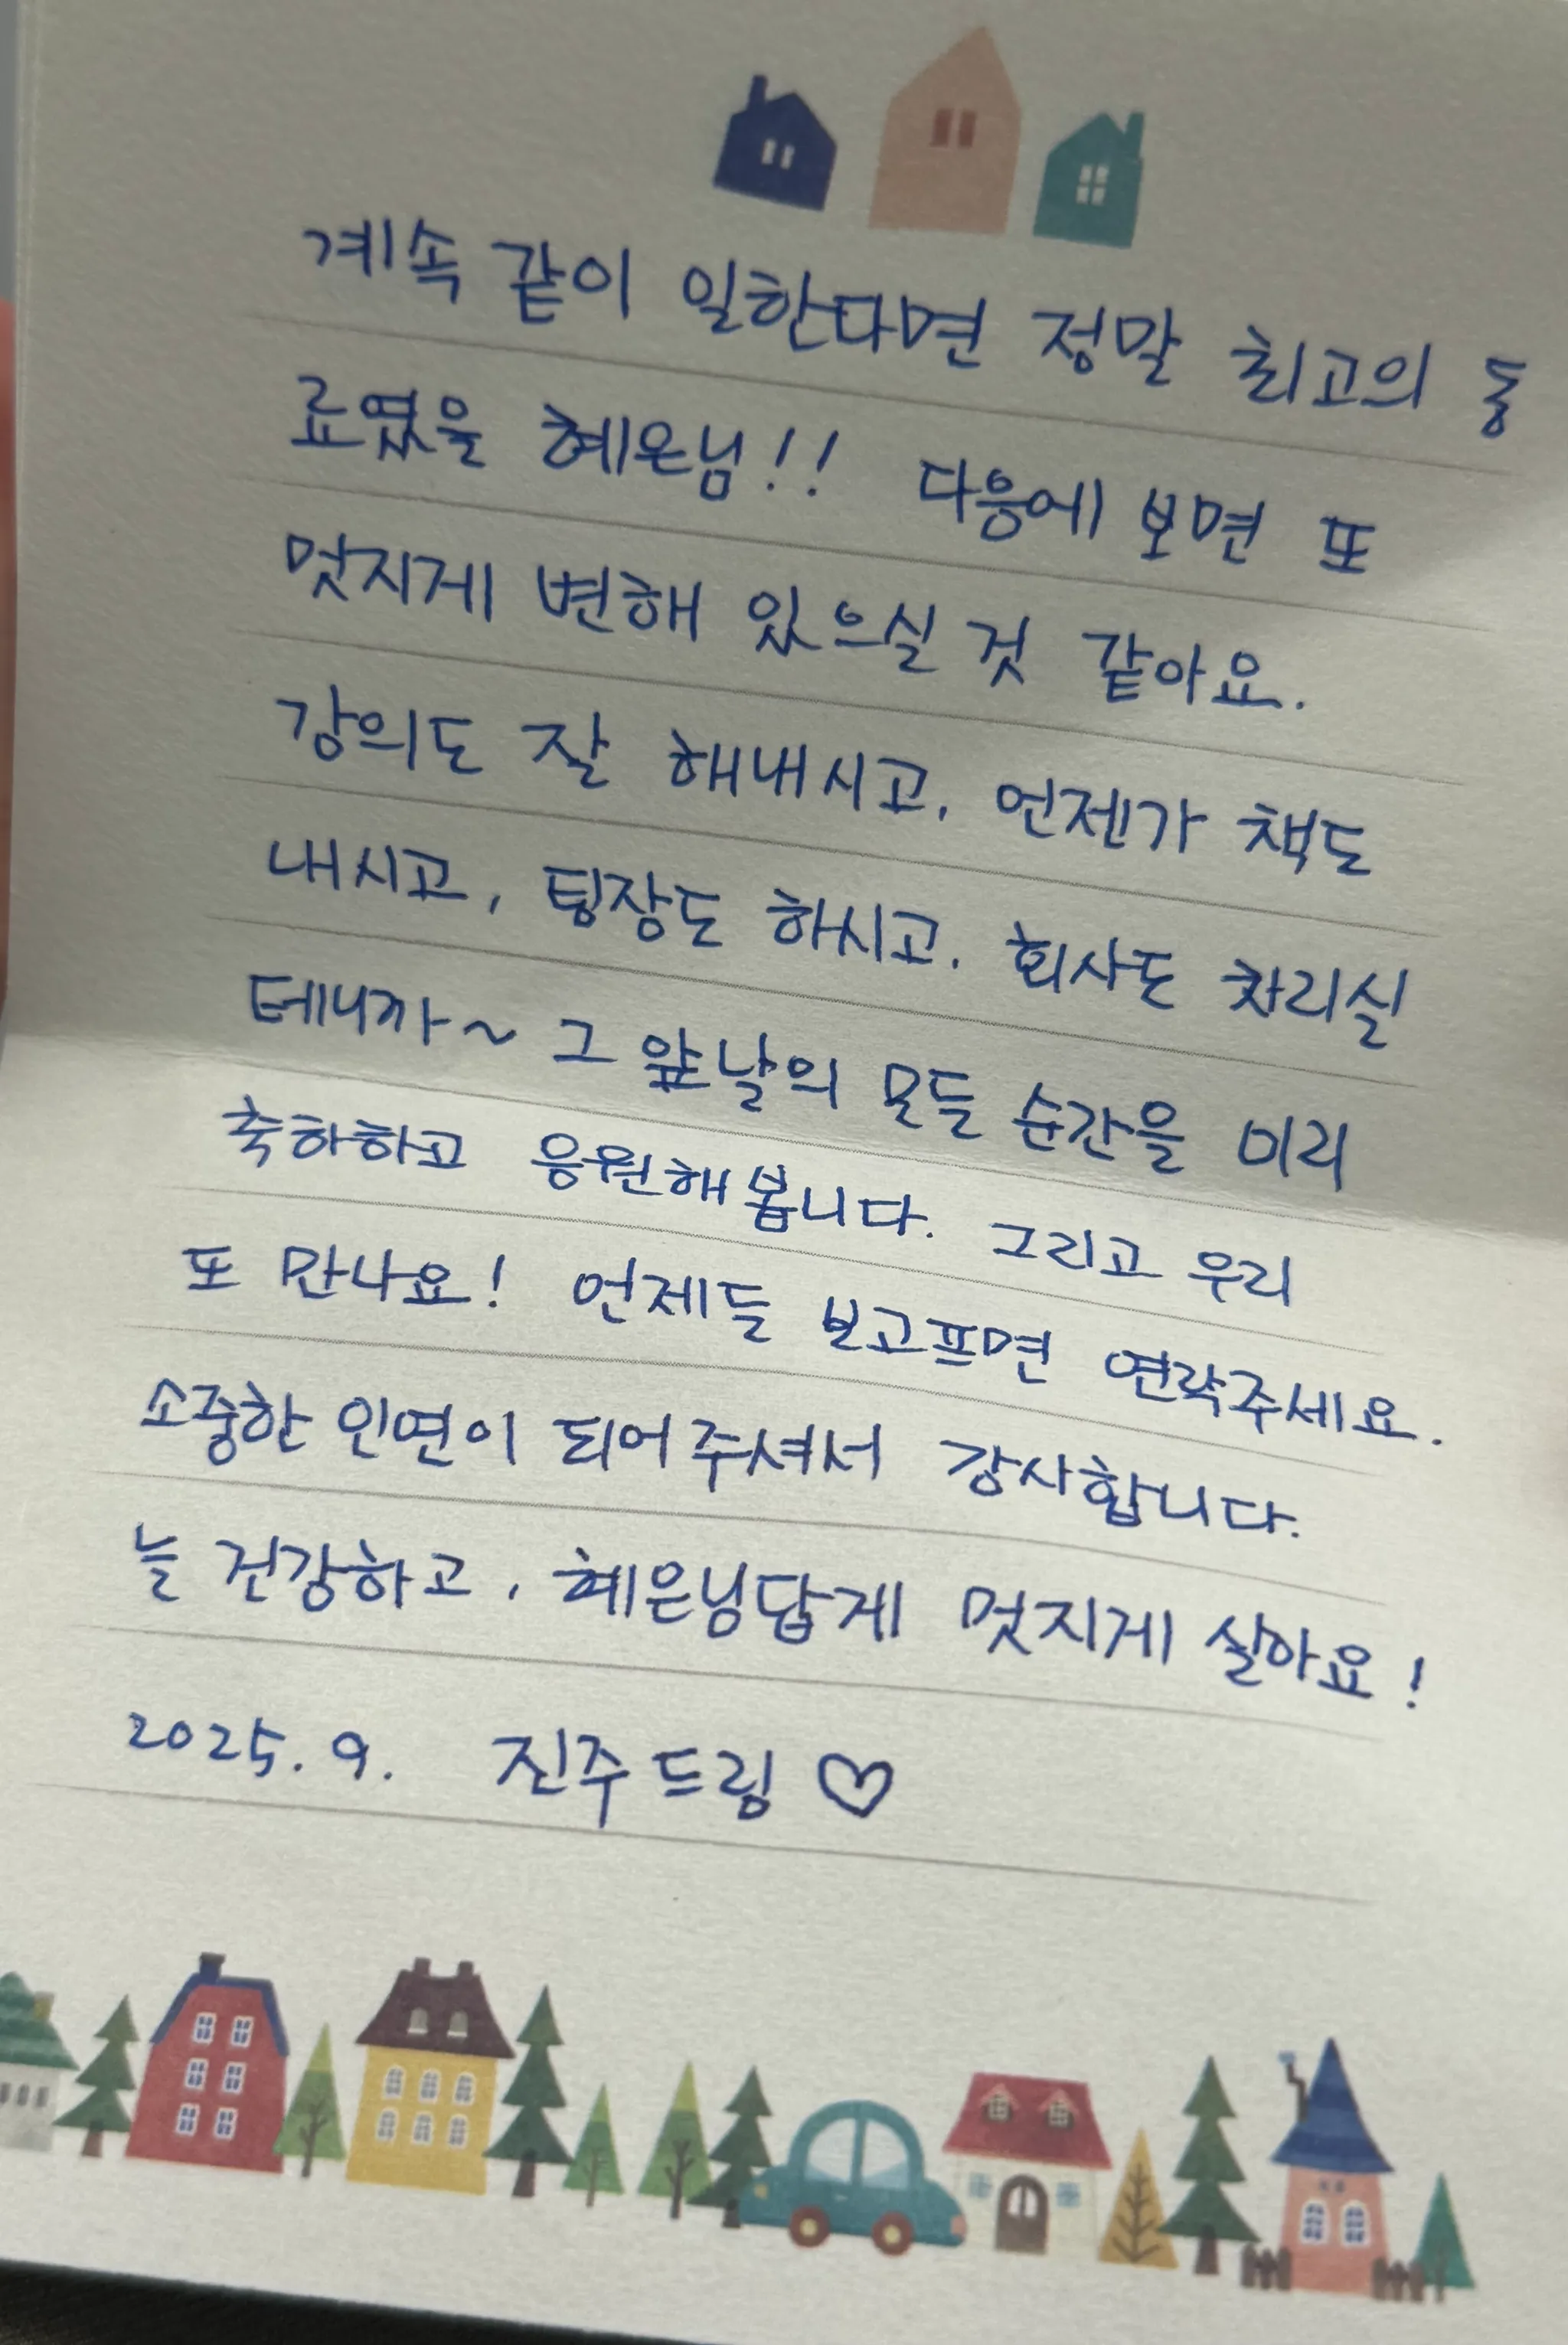 계속 같이 일한다면 정말 최고의 동
료였을 혜은님!! 다음에 보면 또
멋지게 변해 있으실 것 같아요.
강의도 잘 해내시고, 언젠가 책도
내시고, 팀장도 하시고, 회사도 차리실
테니까~ 그 앞날의 모든 순간을 미리
축하하고 응원해봅니다. 그리고 우리
또 만나요! 언제든 보고프면 연락주세요.
소중한 인연이 되어주셔서 감사합니다.
늘 건강하고, 혜은님답게 멋지게 살아요!
2025. 9. 진주 드림 ♡